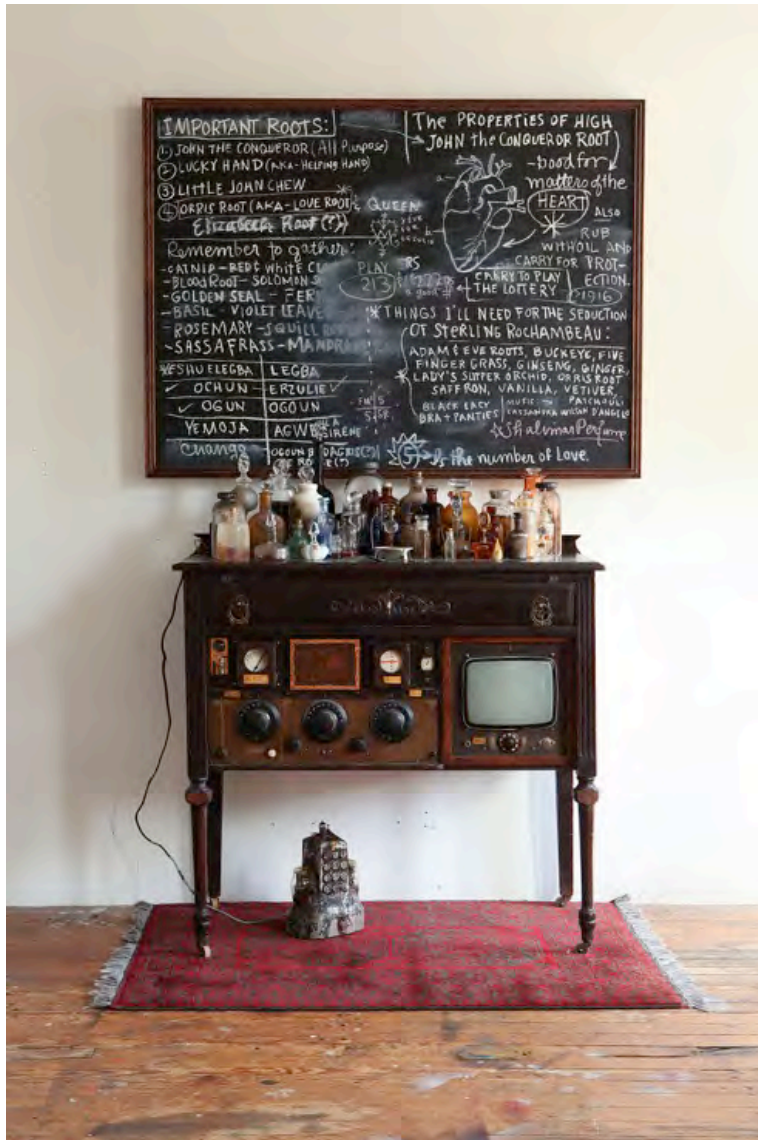 IMPORTANT ROOTS:
① JOHN THE CONQUEROR (All Purpose)
② LUCKY HAND (AKA-HELPING HAND)
③ LITTLE JOHN CHEW
④ ORRIS ROOT (AKA-LOVE ROOT)
Elizabeth Root (?)
Remember to gather:
-CATNIP -BEDS White
-BLOODROOT -SOLOMON
-GOLDEN SEAL -
-BASIL -VIOLET LEAVE
-ROSEMARY -SQUILL
-SASSAFRASS -MANDRA
YESHUELEGBA LEGBA
✓ OCHUN ERZULIE ✓
✓ OGUN OGOUN
YEMOJA AGWE
Chango
QUEEN
PLAY
213
The PROPERTIES OF HIGH
JOHN the CONQUEROR ROOT
-good for
matters of the
HEART
ALSO
RUB
WITH OIL AND
CARRY FOR PROT-
ECTION.
CARRY TO PLAY
THE LOTTERY
1916
*THINGS I'LL NEED FOR THE SEDUCTION
OF STERLING ROCHAMBEAU:
ADAM & EVE ROOTS, BUCKEYE, FIVE
FINGER GRASS, GINSENG, GINGER,
LADY'S SLIPPER ORCHID, ORRIS ROOT
SAFFRON, VANILLA, VETIVER,
PATCHOULI
BLACK LACY
BRA + PANTIES
MUSIC:
CASSANDRA WILSON D'ANGELO
Shalimar Perfume
5 Is the number of Love.